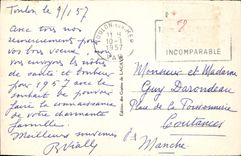 Toulon le 9/1/57
Avec tous nos
remerciements pour
vos bons voeux nous
vous envoyons les notres
de santé et bonheur
pour 1957 ans le
souhait de pouvoir
faire la connaissance
de votre charmante
famille.
Meilleurs souvenirs
R. Vially
TOULON
1957
VAR
INCOMPARABLE
Monsieur et Madame
Guy Darondeau
Place de la Poissonnerie
Coutances
Manche